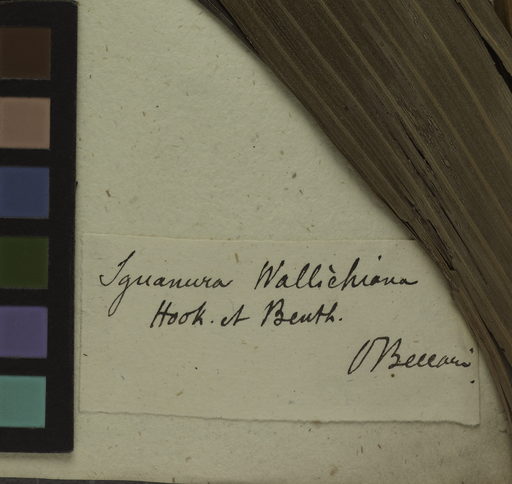 Iguanura Wallichiana
Hook. et Benth.
O Beccari